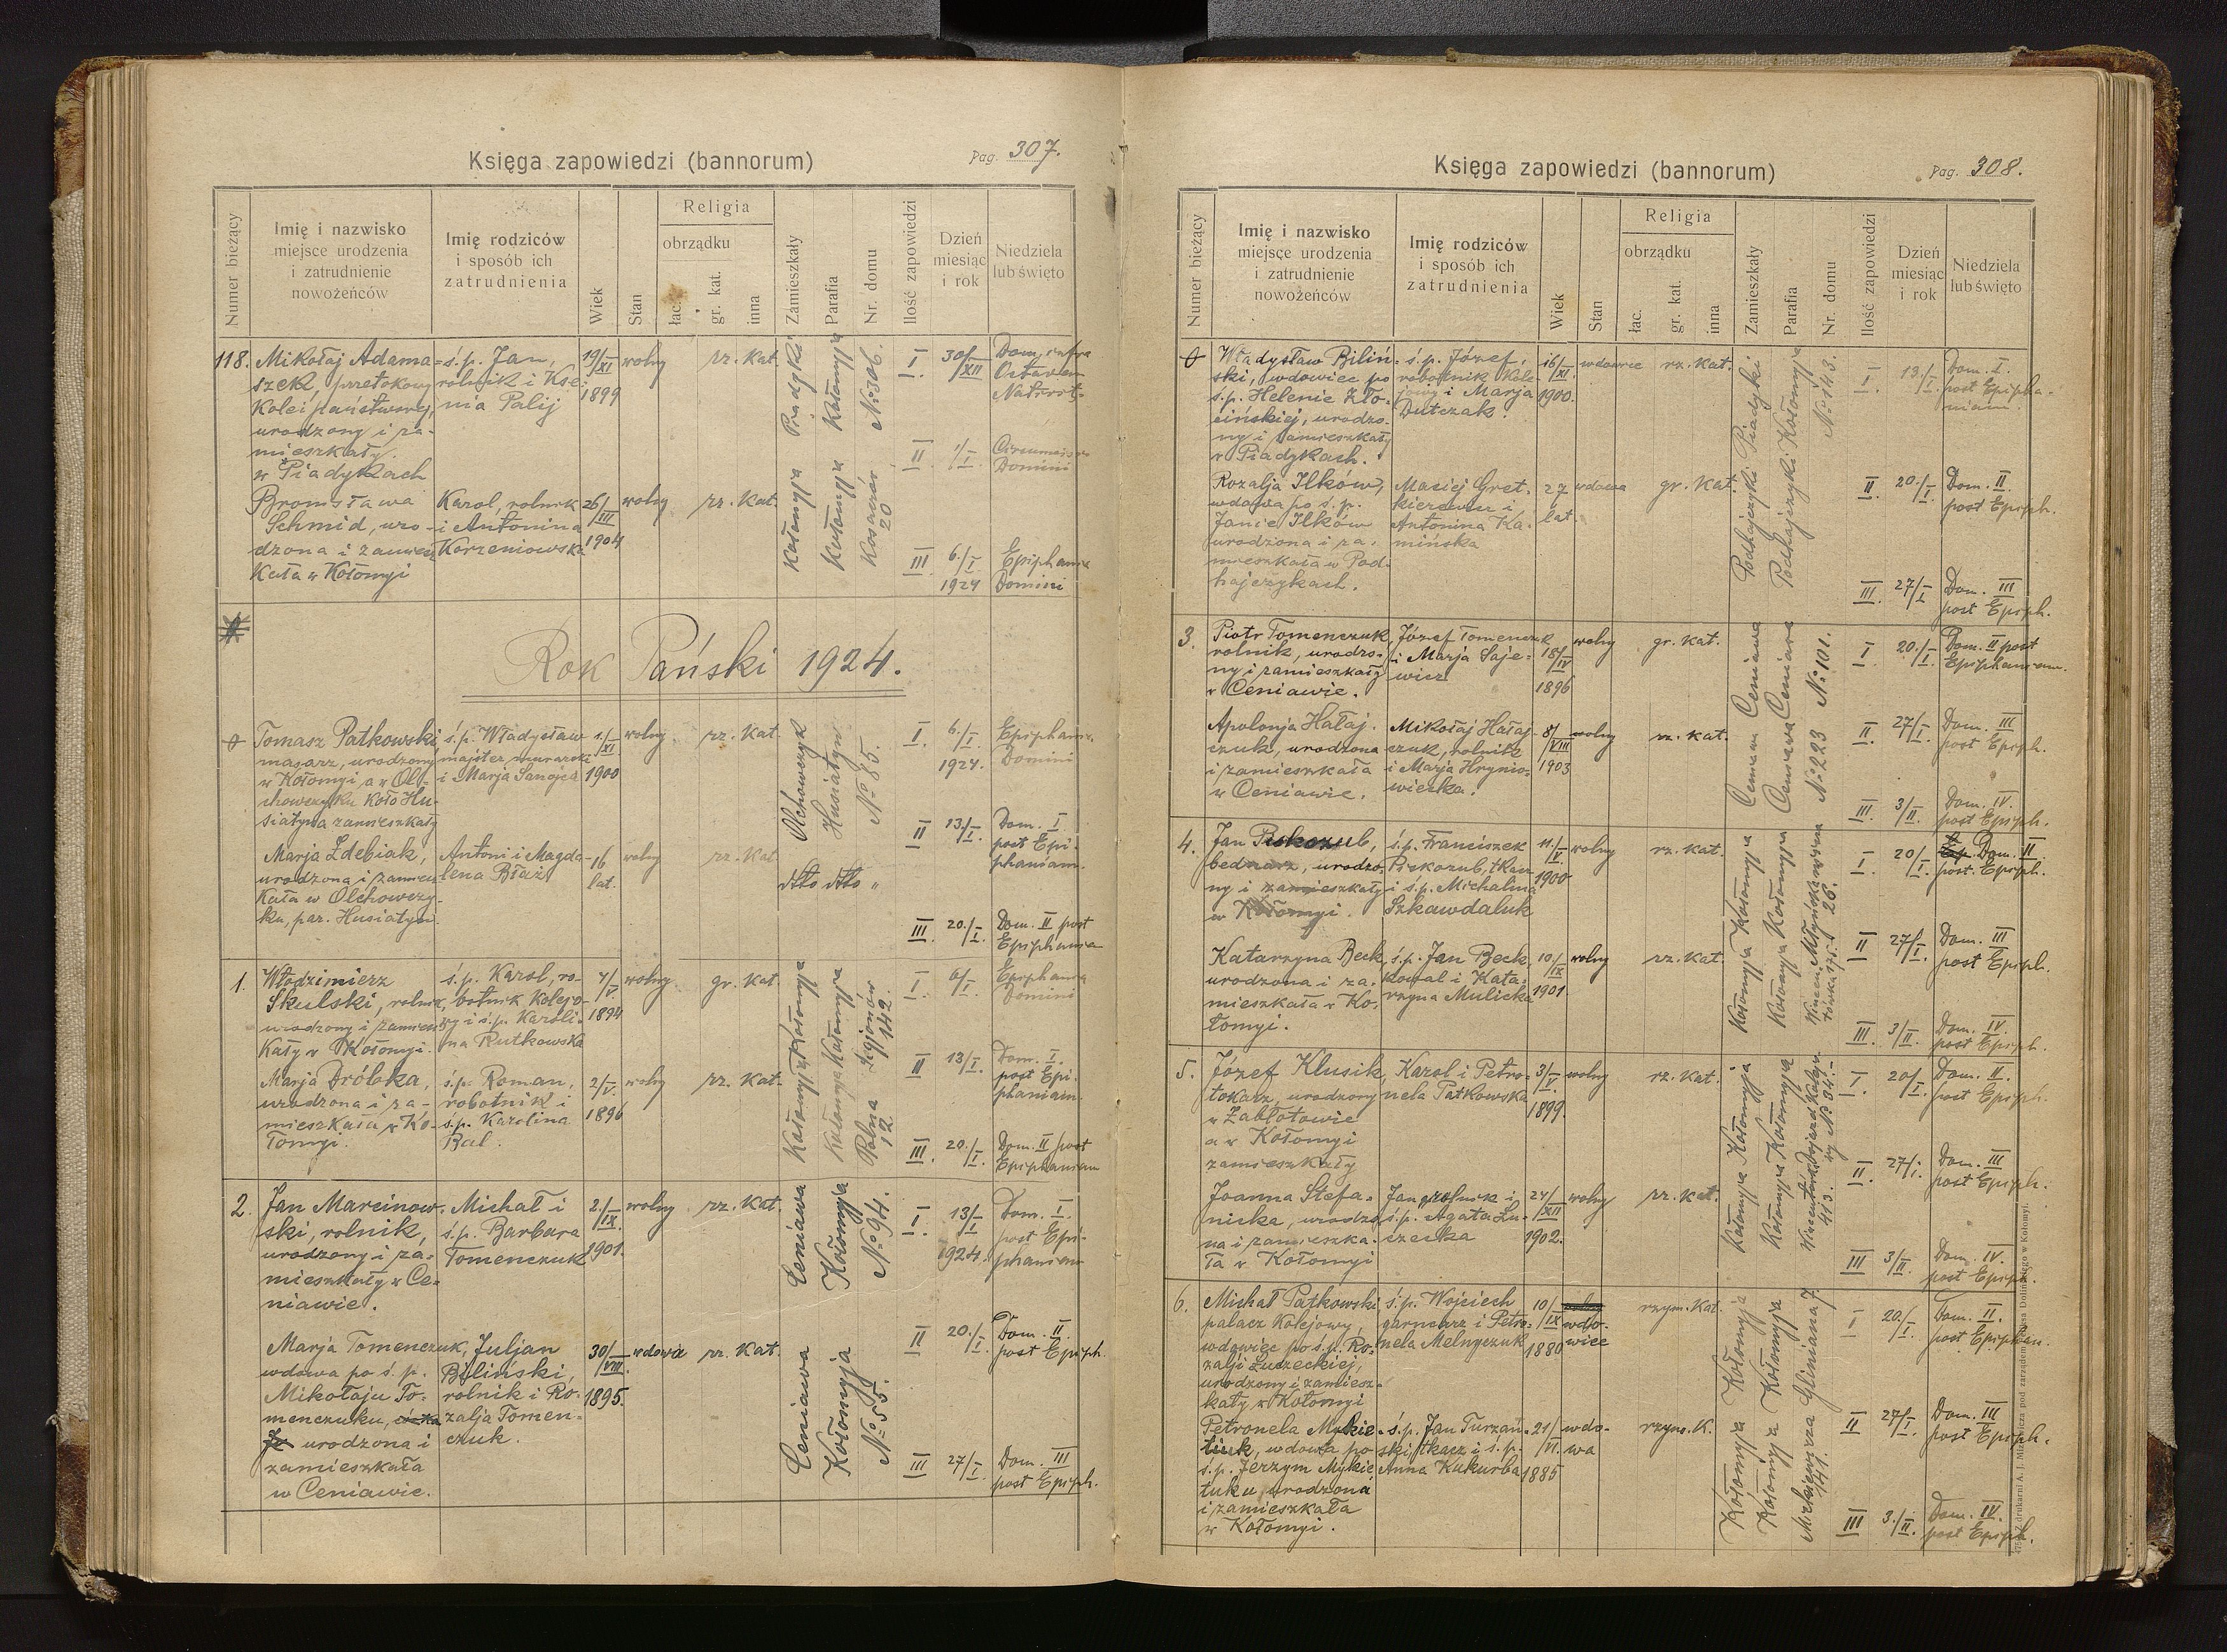 Księga zapowiedzi (bannorum)
Pag. 307.
Numer bieżący
Imię i nazwisko
miejsce urodzenia
i zatrudnienie
nowożeńców
Imię rodziców
i sposób ich
zatrudnienia
Wiek
Stan
Religia
obrządku
łac.
gr. kat.
inna
Zamieszkały
Parafia
Nr. domu
Ilość zapowiedzi
Dzień
miesiąc
i rok
Niedziela
lub święto
118.
Mikołaj Adama=
szek, przetokowy
kolei państwowej,
urodzony i za-
mieszkały
w Piadykach
ś.p. Jan,
rolnik i Kse-
nia Palij
19/XI
1899
wolny
rz. kat.
Piadyki
Kołomyja
№ 306.
I. 30/XII
Dom. infra
Octavam
Nativit.
II 1/I
Circumcisio
Domini
Bronisława
Schmid, uro-
dzona i zamiesz
kała w Kołomyi
Karol, rolnik
i Antonina
Korzeniowska
26/III
1904
wolny
rz. kat.
Kołomyja
Kołomyja
Kosaców
20
III 6./I
1924
Epiphania
Domini
Rok Pański 1924.
Tomasz Patkowski,
masarz, urodzony
w Kołomyi a w Ol-
chowczyku koło Hu-
siatyna zamieszkały
ś.p. Władysław
majster murarski
i Marja Sanojca
1./XI
1900
wolny
rz. kat.
Olchowczyk
Husiatyn
№ 85.
I 6./I
1924.
Epiphania
Domini
II 13./I
Dom. I
post Epi-
phaniam.
Marja Zdebiak,
urodzona i zamiesz
kała w Olchowczy-
ku, par. Husiatyn.
Antoni i Magda-
lena Błaż
16
lat.
wolny
rz. kat
dtto dtto "
III. 20./I.
Dom. II post
Epiphaniam
1.
Włodzimierz
Skulski, rolnik,
urodzony i zamiesz
kały w Kołomyi.
ś.p. Karol, ro-
botnik kolejo-
wy i ś.p. Karoli-
na Rutkowska
1894
wolny
gr. kat.
Kołomyja
Kołomyja
Legjonów
142.
I 6/I
Epiphania
Domini
II 13/I
Dom. I.
post Epi-
phaniam.
Marja Dróbka,
urodzona i za-
mieszkała w Ko-
łomyi.
ś.p. Roman,
robotnik i
ś.p. Karolina
Bal.
2/V.
1896
wolny
rz. kat.
Kołomyja
Kołomyja
Polna
12.
III. 20./I.
Dom. II post
Epiphaniam
2.
Jan Marcinow-
ski, rolnik,
urodzony i za-
mieszkały w Ce-
niawie.
Michał i
ś.p. Barbara
Tomenczuk
2./IX.
1901.
wolny
rz. kat.
Ceniawa
Kołomyja
№ 94.
I. 13/I
1924.
Dom. I.
post Epi-
phaniam
II 20./I.
Dom. II.
post Epiph.
Marja Tomenczuk,
wdowa po ś.p.
Mikołaju To-
menczuku,
urodzona i
zamieszkała
w Ceniawie.
Juljan
Biliński,
rolnik i Ro-
zalja Tomen-
czuk.
30/VIII.
1895.
wdowa
rz. kat.
Ceniawa
Kołomyja
№ 55.
III 27/I
Dom. III
post Epiph.
Księga zapowiedzi (bannorum)
Pag. 308.
Numer bieżący
Imię i nazwisko
miejsce urodzenia
i zatrudnienie
nowożeńców
Imię rodziców
i sposób ich
zatrudnienia
Wiek
Stan
Religia
obrządku
łac.
gr. kat.
inna
Zamieszkały
Parafia
Nr. domu
Ilość zapowiedzi
Dzień
miesiąc
i rok
Niedziela
lub święto
Władysław Biliń-
ski, wdowiec po
ś.p. Helenie Zło-
cińskiej, urodzo-
ny i zamieszkały
w Piadykach.
ś.p. Józef,
robotnik kole-
jowy i Marja
Dutczak.
16/XI.
1900.
wdowiec
rz. kat.
Piadyki
Kołomyja
№ 143.
I. 13./I.
Dom. I.
post Epipha-
niam.
Rozalja Ilków,
wdowa po ś.p.
Janie Ilków
urodzona i za-
mieszkała w Pod-
hajczykach.
Maciej Gret-
kierewicz i
Antonina Ka-
mińska
27
lat.
wdowa
gr. kat.
Podhajczyki
Podhajczyki
II. 20./I
Dom. II.
post Epiph.
III. 27/I
Dom. III
post Epiph.
3.
Piotr Tomenczuk,
rolnik, urodzo-
ny i zamieszkały
w Ceniawie.
Józef Tomenczuk
i Marja Saje-
wicz
18/IV
1896
wolny
gr. kat.
Ceniawa
Ceniawa
№ 101.
I 20./I.
Dom. II post
Epiphaniam.
II. 27/I.
Dom. III
post Epiph.
Apolonja Hałaj-
czuk, urodzona
i zamieszkała
w Ceniawie.
Mikołaj Hałaj-
czuk, rolnik
i Marja Hrynio-
wiecka.
8/VIII
1903
wolny
rz. kat.
Ceniawa
Ceniawa
№ 223
III. 3/II.
Dom. IV.
post Epiph.
4.
Jan Piskozub,
bednarz, urodzo-
ny i zamieszkały
w Kołomyi.
ś.p. Franciszek
Piskozub, tkacz
i ś.p. Michalina
Szkawdaluk
11./V.
1900
wolny
rz. kat.
Kołomyja
Kołomyja
Młyńska
26.
I. 20/I.
Dom. II.
post. Epiph.
II 27/I.
Dom. III
post Epiph.
Katarzyna Beck,
urodzona i za-
mieszkała w Ko-
łomyi.
ś.p. Jan Beck,
kowal i Kata-
rzyna Mulicka
10/IX
1901
wolny
rz. kat.
Kołomyja
Kołomyja
III. 3/II.
Dom. IV.
post Epiph.
5.
Józef Klusik,
tokarz, urodzony
w Zabłotowie
a w Kołomyi
zamieszkały
Karol i Petro-
nela Patkowska
3/V
1899.
wolny
rz. kat.
Kołomyja
Kołomyja
Dojazd Kolejo-
wy № 34.
I. 20/I.
Dom. II.
post Epiph.
II. 27/I.
Dom. III
post Epiph.
Joanna Stefa-
nicka, urodzo-
na i zamieszka-
ła w Kołomyi
Jan, rolnik i
ś.p. Agata Łu-
czecka
24/XII
1902.
wolny
rz. kat.
Kołomyja
Kołomyja
413.
III 3/II.
Dom. IV.
post Epiph.
6.
Michał Patkowski
palacz kolejowy,
wdowiec po ś.p. Ro-
zalji Łuczeckiej,
urodzony i zamiesz-
kały w Kołomyi
ś.p. Wojciech
garncarz i Petro-
nela Melnyczuk
10/IX
1880
wdo-
wiec
rzym. kat.
Kołomyja
Kołomyja
Gliniana 7.
I 20./I.
Dom. II.
post Epiphan.
II 27/I.
Dom. III
post Epiph.
Petronela Mykie-
tiuk, wdowa po
ś.p. Jerzym Mykie
tuku, urodzona
i zamieszkała
w Kołomyi.
ś.p. Jan Turzań-
ski, tkacz i ś.p.
Anna Kukurba
21/VI.
1885
wdo-
wa
rzym. K.
Kołomyja
Kołomyja
141.
III 3./II.
Dom. IV.
post Epiph.